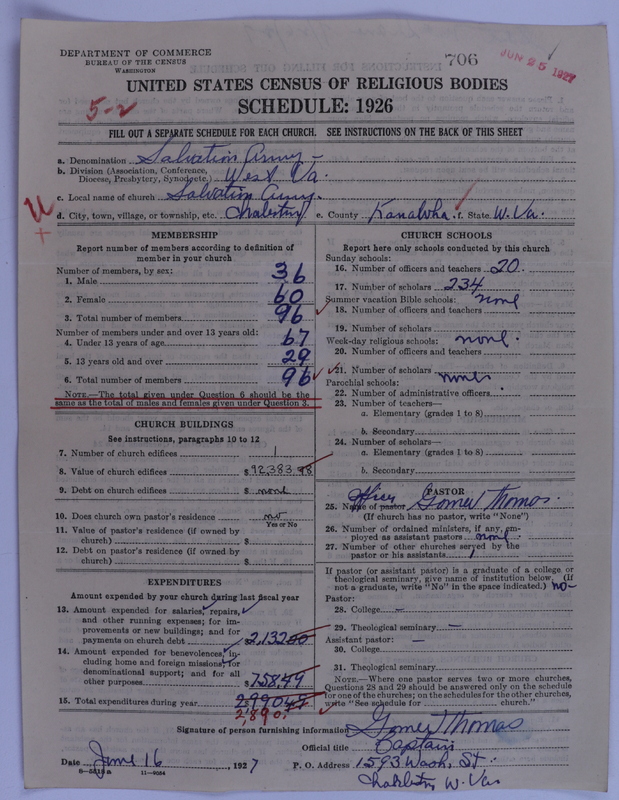 DEPARTMENT OF COMMERCE
BUREAU OF THE CENSUS
WASHINGTON
706
JUN 25 1927
UNITED STATES CENSUS OF RELIGIOUS BODIES
SCHEDULE: 1926
5-2
FILL OUT A SEPARATE SCHEDULE FOR EACH CHURCH. SEE INSTRUCTIONS ON THE BACK OF THIS SHEET
a. Denomination Salvation Army
b. Division (Association, Conference,
Diocese, Presbytery, Synod, etc.) West Va.
c. Local name of church Salvation Army.
d. City, town, village, or township, etc. Charleston e. County Kanawha f. State W. Va.
MEMBERSHIP
Report number of members according to definition of
member in your church
Number of members, by sex:
1. Male 36
2. Female 60
3. Total number of members 96
Number of members under and over 13 years old:
4. Under 13 years of age 67
5. 13 years old and over 29
6. Total number of members 96
NOTE.—The total given under Question 6 should be the
same as the total of males and females given under Question 3.
CHURCH BUILDINGS
See instructions, paragraphs 10 to 12
7. Number of church edifices 1
8. Value of church edifices $92,383.98
9. Debt on church edifices $ none
10. Does church own pastor's residence no
Yes or No
11. Value of pastor's residence (if owned by
church) $
12. Debt on pastor's residence (if owned by
church) $
EXPENDITURES
Amount expended by your church during last fiscal year
13. Amount expended for salaries, repairs,
and other running expenses; for im-
provements or new buildings; and for
payments on church debt 2,132.00
14. Amount expended for benevolences, in-
cluding home and foreign missions; for
denominational support; and for all
other purposes $ 758.49
15. Total expenditures during year
2,890.
CHURCH SCHOOLS
Report here only schools conducted by this church
Sunday schools:
16. Number of officers and teachers 20
17. Number of scholars 234
Summer vacation Bible schools: none
18. Number of officers and teachers
19. Number of scholars
Week-day religious schools: none.
20. Number of officers and teachers
21. Number of scholars
Parochial schools: none
22. Number of administrative officers
23. Number of teachers—
a. Elementary (grades 1 to 8)
b. Secondary
24. Number of scholars—
a. Elementary (grades 1 to 8)
b. Secondary
PASTOR
25. Name of pastor Gomer Thomas
(If church has no pastor, write "None")
26. Number of ordained ministers, if any, em-
ployed as assistant pastors none.
27. Number of other churches served by the
pastor or his assistants
If pastor (or assistant pastor) is a graduate of a college or
theological seminary, give name of institution below. (If
not a graduate, write "No" in the space indicated.) no-
Pastor:
28. College —
29. Theological seminary —
Assistant pastor: —
30. College
31. Theological seminary
NOTE.—Where one pastor serves two or more churches,
Questions 28 and 29 should be answered only on the schedule
for one of the churches; on the schedules for the other churches,
write "See schedule for church."
Signature of person furnishing information Gomer Thomas
Official title Captain
Date June 16, 1927 P. O. Address 1593 Wash. St.
8-5518a 11-9054
Charleston W. Va